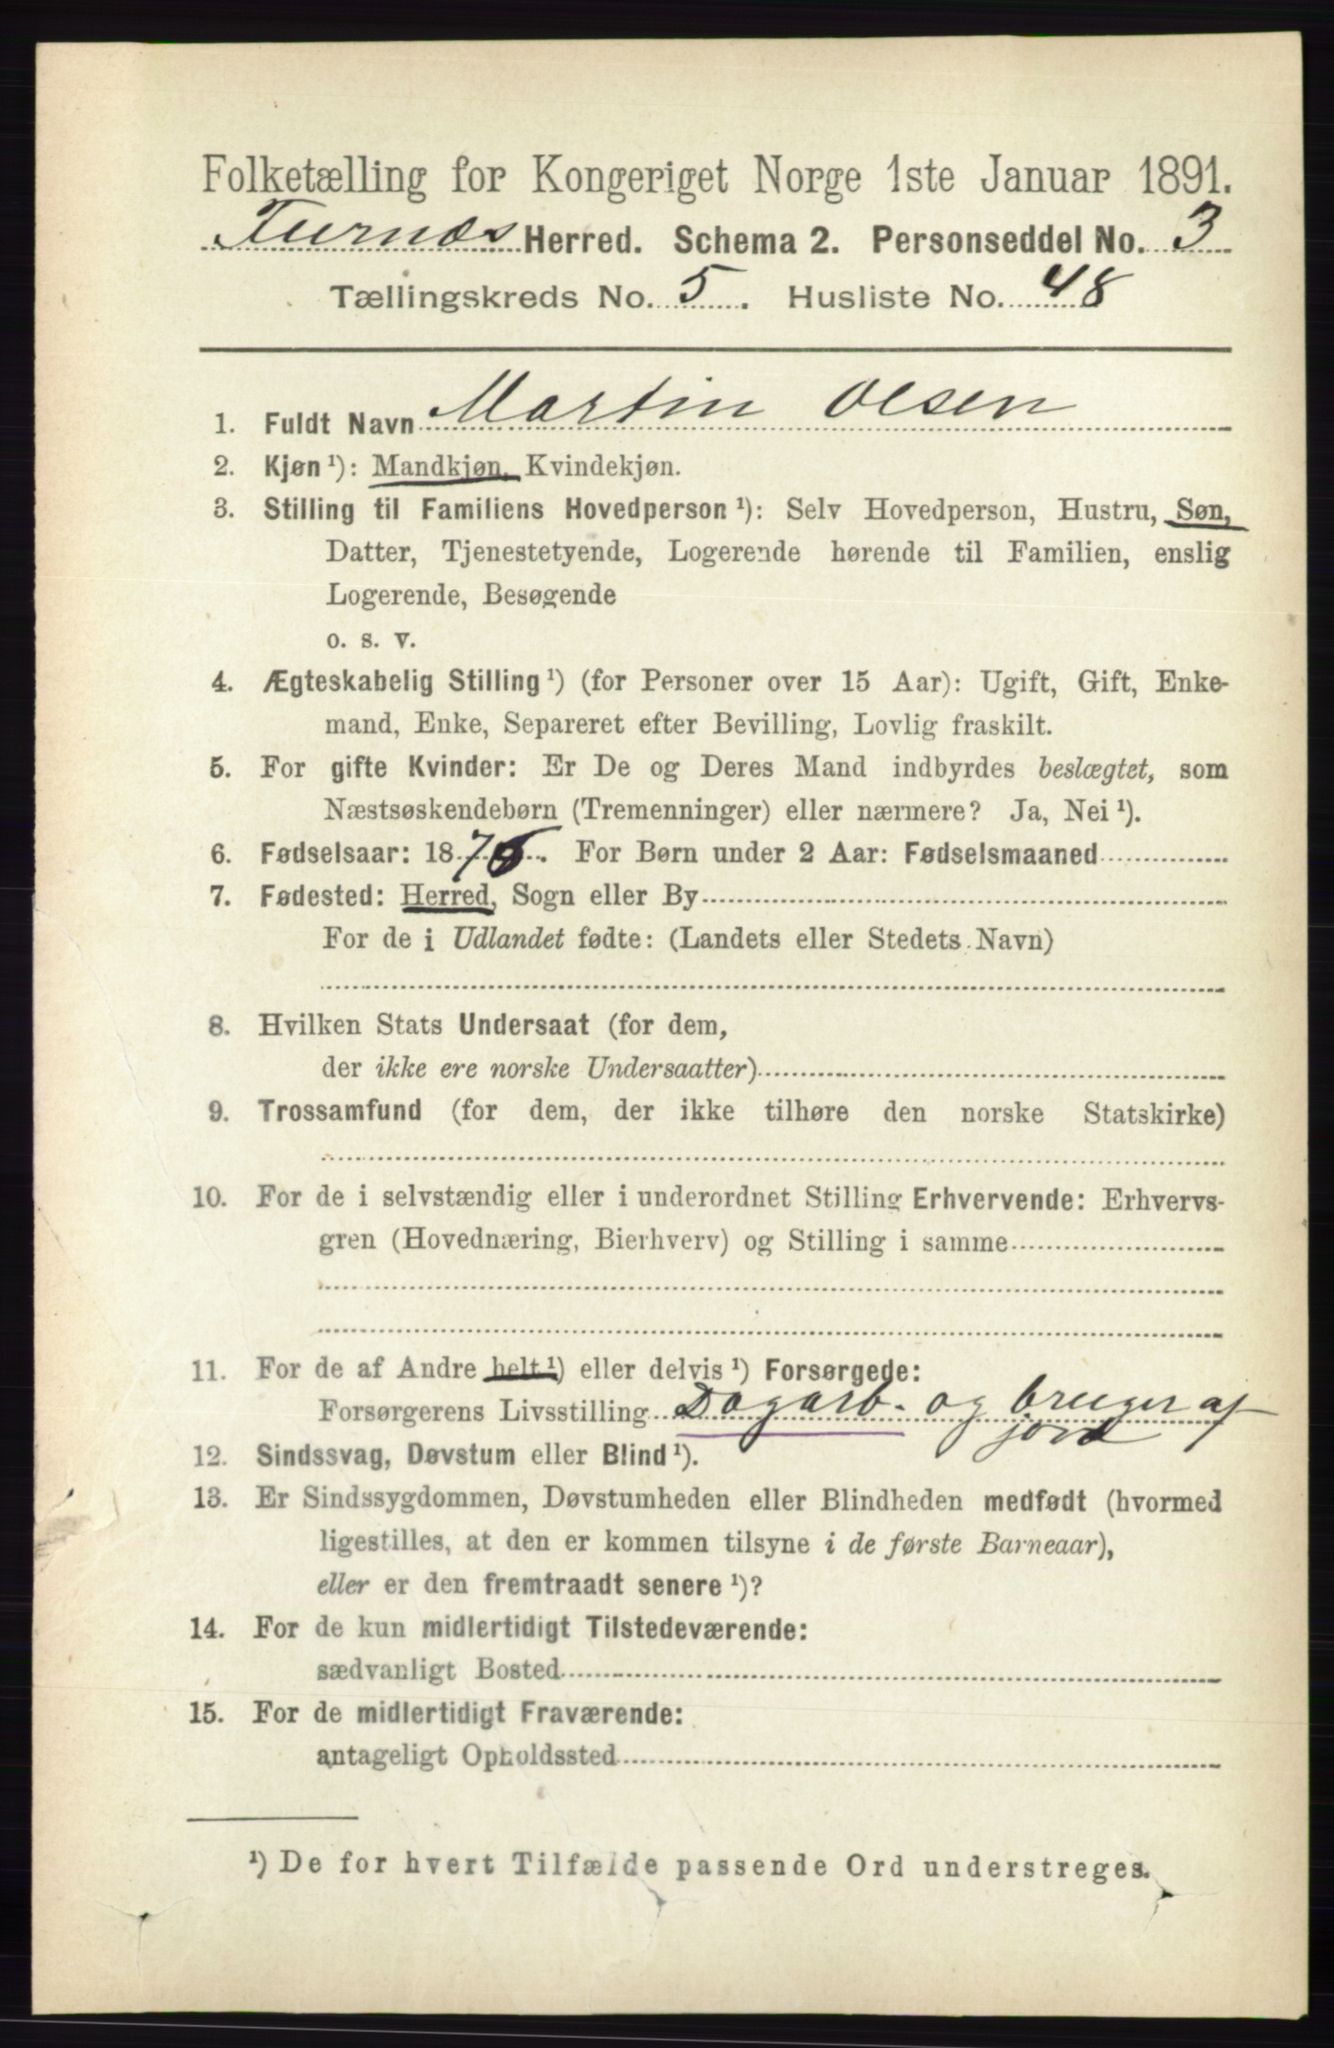 Folketælling for Kongeriget Norge 1ste Januar 1891.
Furnæs Herred. Schema 2. Personseddel No. 3
Tællingskreds No. 5. Husliste No. 48
1. Fuldt Navn Martin Olsen
2. Kjøn ¹): Mandkjøn, Kvindekjøn.
3. Stilling til Familiens Hovedperson ¹): Selv Hovedperson, Hustru, Søn,
Datter, Tjenestetyende, Logerende hørende til Familien, enslig
Logerende, Besøgende
o. s. v.
4. Ægteskabelig Stilling ¹) (for Personer over 15 Aar): Ugift, Gift, Enke-
mand, Enke, Separeret efter Bevilling, Lovlig fraskilt.
5. For gifte Kvinder: Er De og Deres Mand indbyrdes beslægtet, som
Næstsøskendebørn (Tremenninger) eller nærmere? Ja, Nei ¹).
6. Fødselsaar: 1876. For Børn under 2 Aar: Fødselsmaaned
7. Fødested: Herred, Sogn eller By
For de i Udlandet fødte: (Landets eller Stedets Navn)
8. Hvilken Stats Undersaat (for dem,
der ikke ere norske Undersaatter)
9. Trossamfund (for dem, der ikke tilhøre den norske Statskirke)
10. For de i selvstændig eller i underordnet Stilling Erhvervende: Erhvervs-
gren (Hovednæring, Bierhverv) og Stilling i samme
11. For de af Andre helt ¹) eller delvis ¹) Forsørgede:
Forsørgerens Livsstilling Dagarb. og bruger af
jord
12. Sindssvag, Døvstum eller Blind ¹).
13. Er Sindssygdommen, Døvstumheden eller Blindheden medfødt (hvormed
ligestilles, at den er kommen tilsyne i de første Barneaar),
eller er den fremtraadt senere ¹)?
14. For de kun midlertidigt Tilstedeværende:
sædvanligt Bosted
15. For de midlertidigt Fraværende:
antageligt Opholdssted
¹) De for hvert Tilfælde passende Ord understreges.